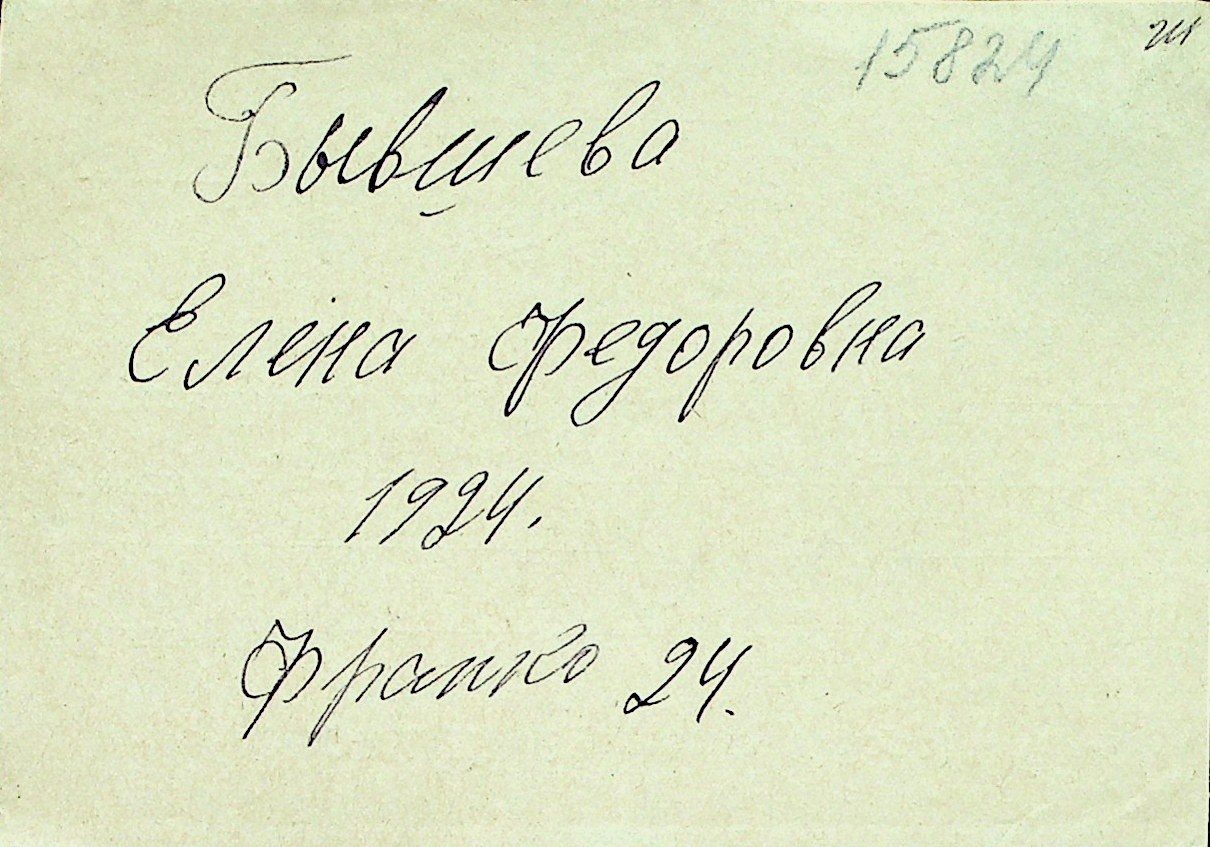 15824
Бывшева
Елена Федоровна
1924.
Франко 24.